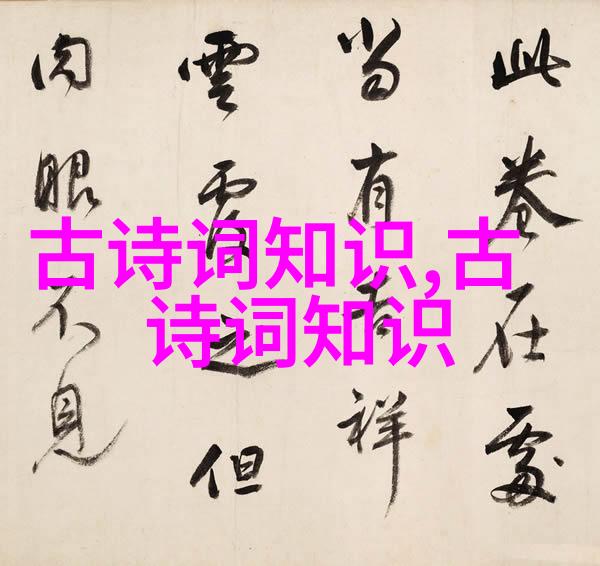 此卷在處
当有吉祥
雲覆之但
肉眼不見
古诗词知识,古
诗词知识